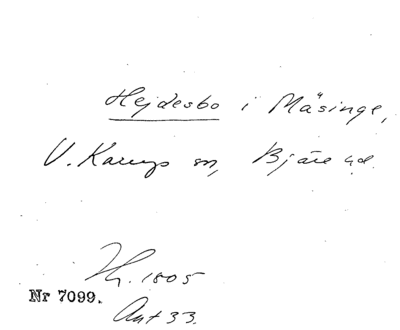 Hejdesbo i Mäsinge,
V. Karups sn, Bjäre hd.
Nr 7099.
1805
Ant 33.